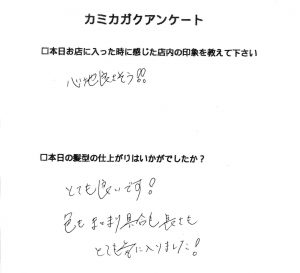 カミカガクアンケート
□本日お店に入った時に感じた店内の印象を教えて下さい
心地良さそう!!
□本日の髪型の仕上がりはいかがでしたか？
とても良いです!
色も まとまり具合も 長さも
とても気に入りました!